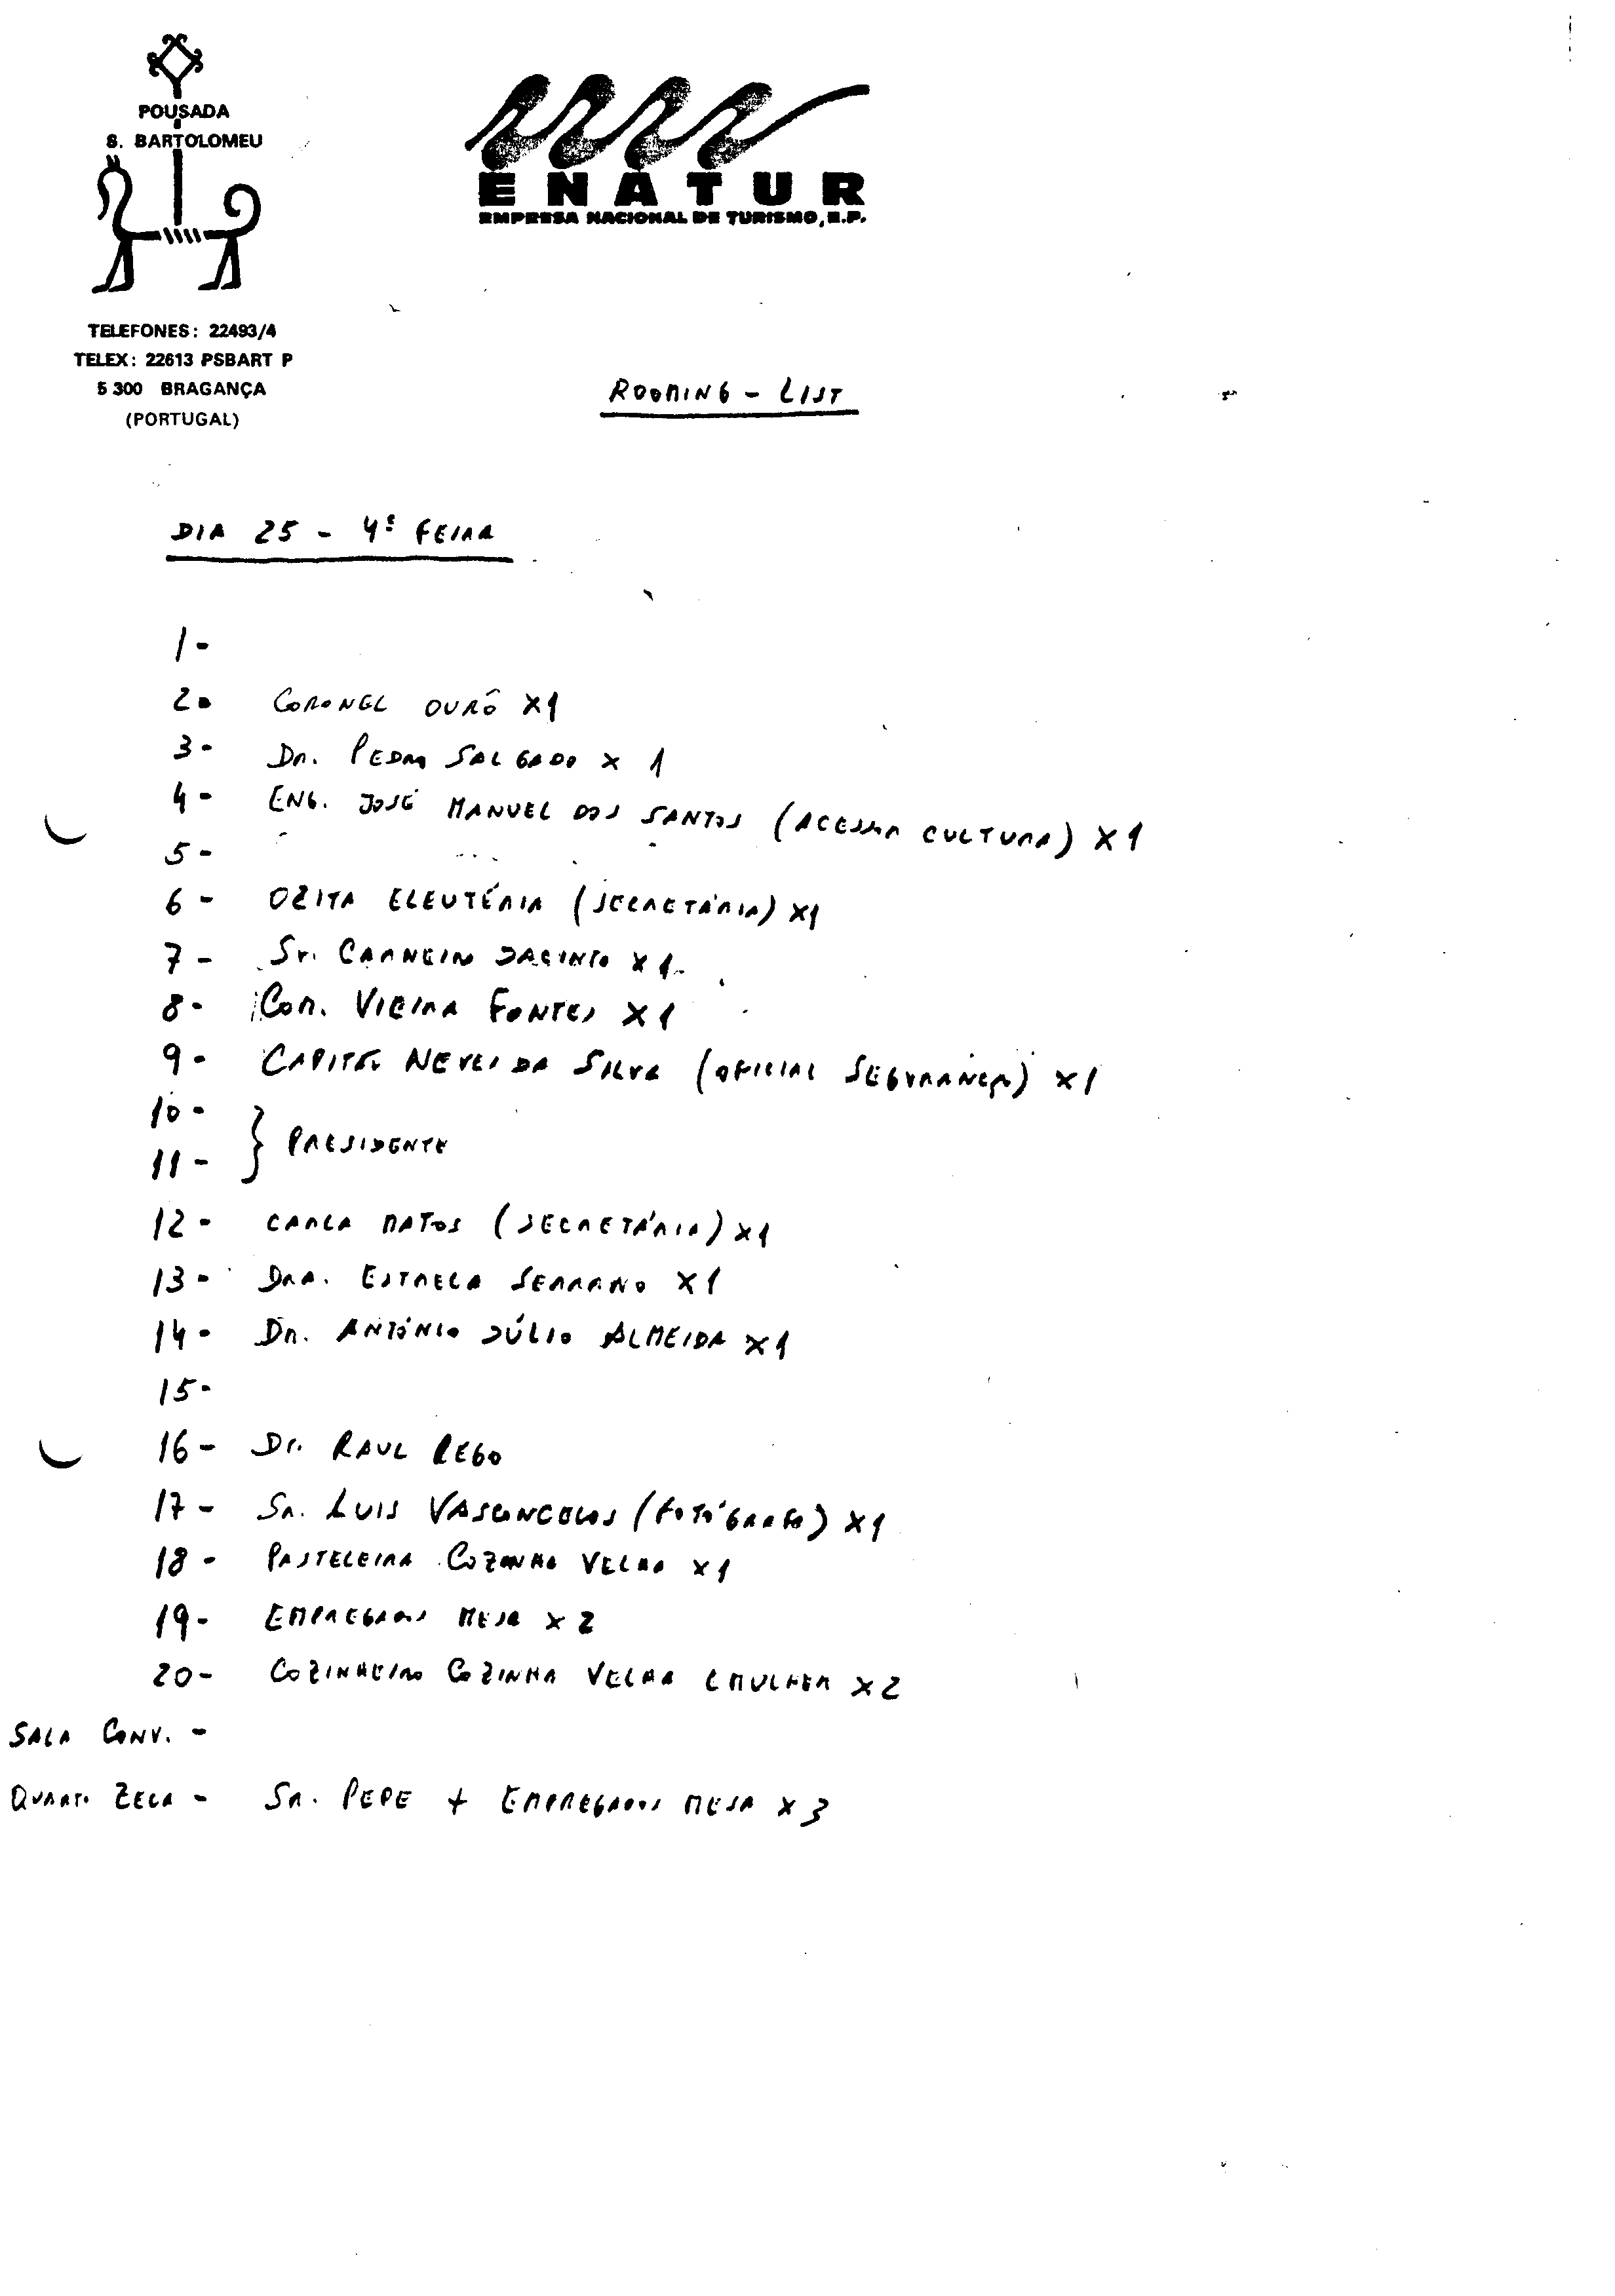 POUSADA
S. BARTOLOMEU
ENATUR
EMPRESA NACIONAL DE TURISMO, E.P.
TELEFONES: 22493/4
TELEX: 22613 PSBART P
5 300 BRAGANÇA
(PORTUGAL)
ROOMING - LIST
DIA 25 - 4ª FEIRA
1 -
2 - CORONEL OURÔ X1
3 - DR. PEDRO SALGADO X 1
4 - ENG. JOSÉ MANUEL DOS SANTOS (ACESSOR CULTURA) X1
5 -
6 - OZITA ELEUTÉRIA (SECRETÁRIA) X1
7 - Sr. CARNEIRO JACINTO X1
8 - COM. VIEIRA FONTES X1
9 - CAPITÃO NEVES DA SILVA (OFICIAL SEGURANÇA) X1
10 -
11 - } PRESIDENTE
12 - CARLA MATOS (SECRETÁRIA) X1
13 - DRA. ESTRELA SERRANO X1
14 - DR. ANTÓNIO JÚLIO ALMEIDA X1
15 -
16 - Dr. RAUL REGO
17 - SR. LUIS VASCONCELOS (FOTÓGRAFO) X1
18 - PASTELEIRA COZINHA VELHA X1
19 - EMPREGADOS MESA X 2
20 - COZINHEIRO COZINHA VELHA E MULHER X2
SALA CONV. -
QUARTO ZECA - SR. PEPE + EMPREGADOS MESA X 3